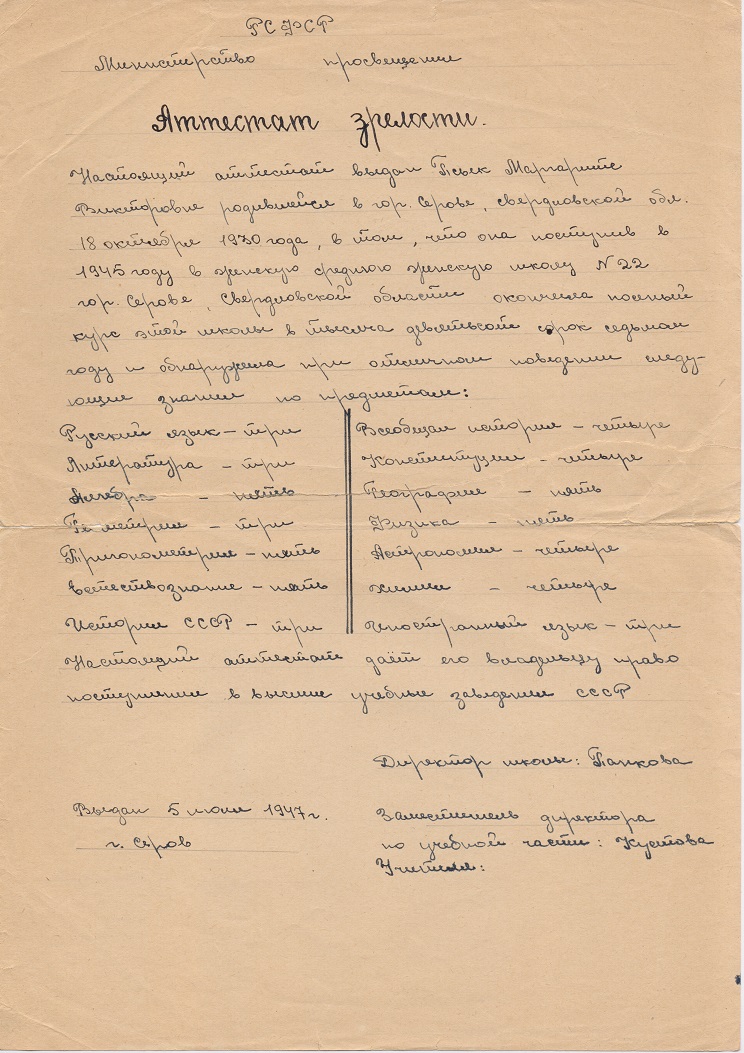 РСФСР
Министерство просвещения
Аттестат зрелости.
Настоящий аттестат выдан Псык Маргарите
Викторовне родившейся в гор. Серове, свердловской обл.
18 октября 1930 года, в том, что она поступив в
1945 году в женскую среднюю женскую школу N 22
гор. Серове, Свердловской области окончила полный
курс этой школы в тысяча девятьсот сорок седьмом
году и обнаружила при отличном поведении следу-
ющие знания по предметам:
Русский язык – три
Литература – три
Алгебра – пять
Геометрия – три
Тригонометрия – пять
Естествознание – пять
История СССР – три
Всеобщая история – четыре
Конституция – четыре
География – пять
Физика – пять
Астрономия – четыре
химия – четыре
Иностранный язык – три
Настоящий аттестат даёт его владельцу право
поступления в высшие учебные заведения СССР
Директор школы: Панкова
Выдан 5 июля 1947 г.
г. Серов
Заместитель директора
по учебной части: Кустова
Учителя: